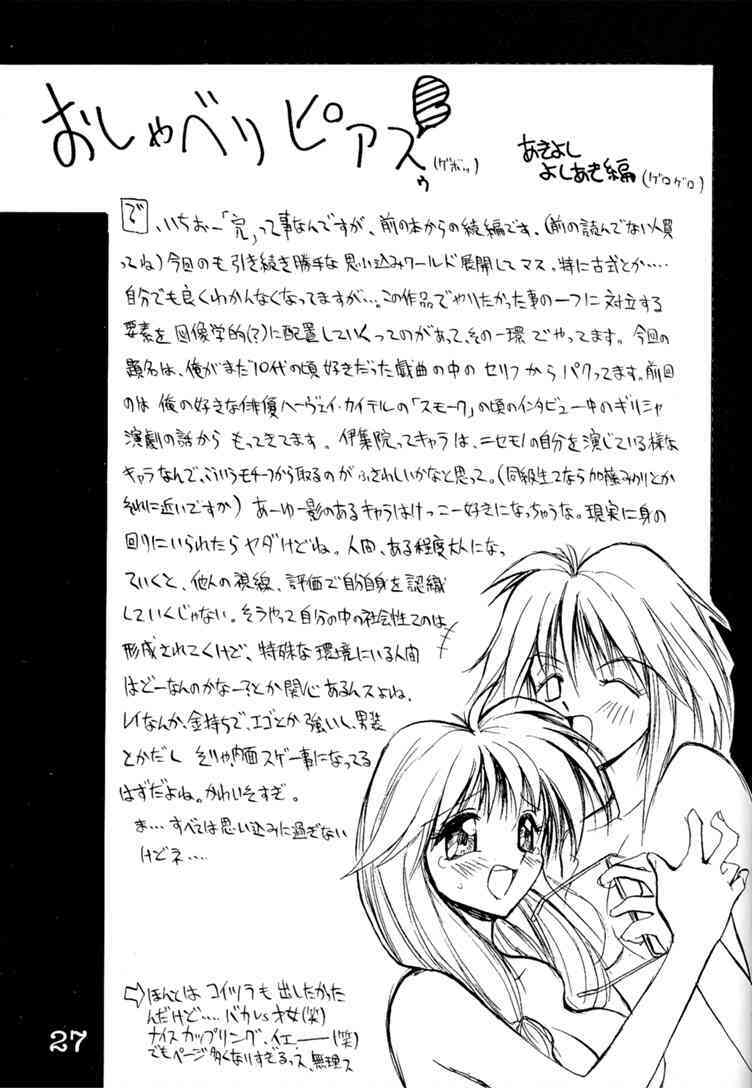 おしゃべりピアスぅ (ゲボッ)
あきよしよしあき編 (ゲロゲロ)
で、いちおー「完」って事なんですが、前の本からの続編です、(前の読んでない人買
ってね) 今回のも引き続き勝手な思い込みワールド展開してマス、特に古式とか‥‥
自分でも良くわかんなくなってますが…。この作品でやりたかった事の一つに対立する
要素を図像学的(?)に配置していくってのがあって、その一環でやってます。今回の
題名は、俺がまだ10代の頃好きだった戯曲の中のセリフからパクってます。前回
のは俺の好きな俳優ハーヴェイ・カイテルの「スモーク」の頃のインタビュー中のギリシャ
演劇の話からもってきてます。伊集院ってキャラは、ニセモノの自分を演じている様な
キャラなんで、こういうモチーフから取るのがふさわしいかなと思って。(同級生2なら加藤みのりとか
それに近いですか) あーゆー影のあるキャラはけっこー好きになっちゃうな。現実に身の
回りにいられたらヤダけどね。人間、ある程度大人にな、
ていくと、他人の視線、評価で自分自身を認識
していくじゃない。そうやって自分の中の社会性てのは
形成されてくけど、特殊な環境にいる人間
はどーなんのかなー?とか関心あるんスよね、
レイなんか、金持ちで、エゴとか強いし、男装
とかだし そりゃ内面スゲー事になってる
はずだよね。かわいそすぎ。
ま…すべては思い込みに過ぎない
けどネ‥‥
⇨ほんとは コイツラも出したかった
んだけど‥‥バカvs才女(笑)
ナイスカップリング、イエーー(笑)
でもページ多くなりすぎるっス、無理ス
27